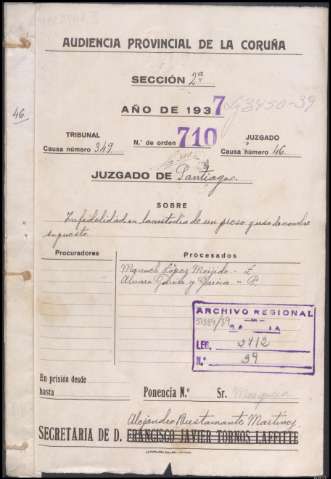 AUDIENCIA PROVINCIAL DE LA CORUÑA
SECCIÓN 2ª
AÑO DE 1937
46
TRIBUNAL
Causa número 349
N.º de orden 710
JUZGADO
Causa número 46
JUZGADO DE Santiago
SOBRE
Infidelidad en la custodia de un preso y uso de nombre
supuesto
Procuradores
Procesados
Manuel López
Alvaro García y
ARCHIVO REGIONAL
LEG. 3412
N.º 39
En prisión desde
hasta
Ponencia N.º
Sr.
Alejandro Bustamante Martínez
SECRETARIA DE D. FRANCISCO JAVIER TORNOS LAFFITTE